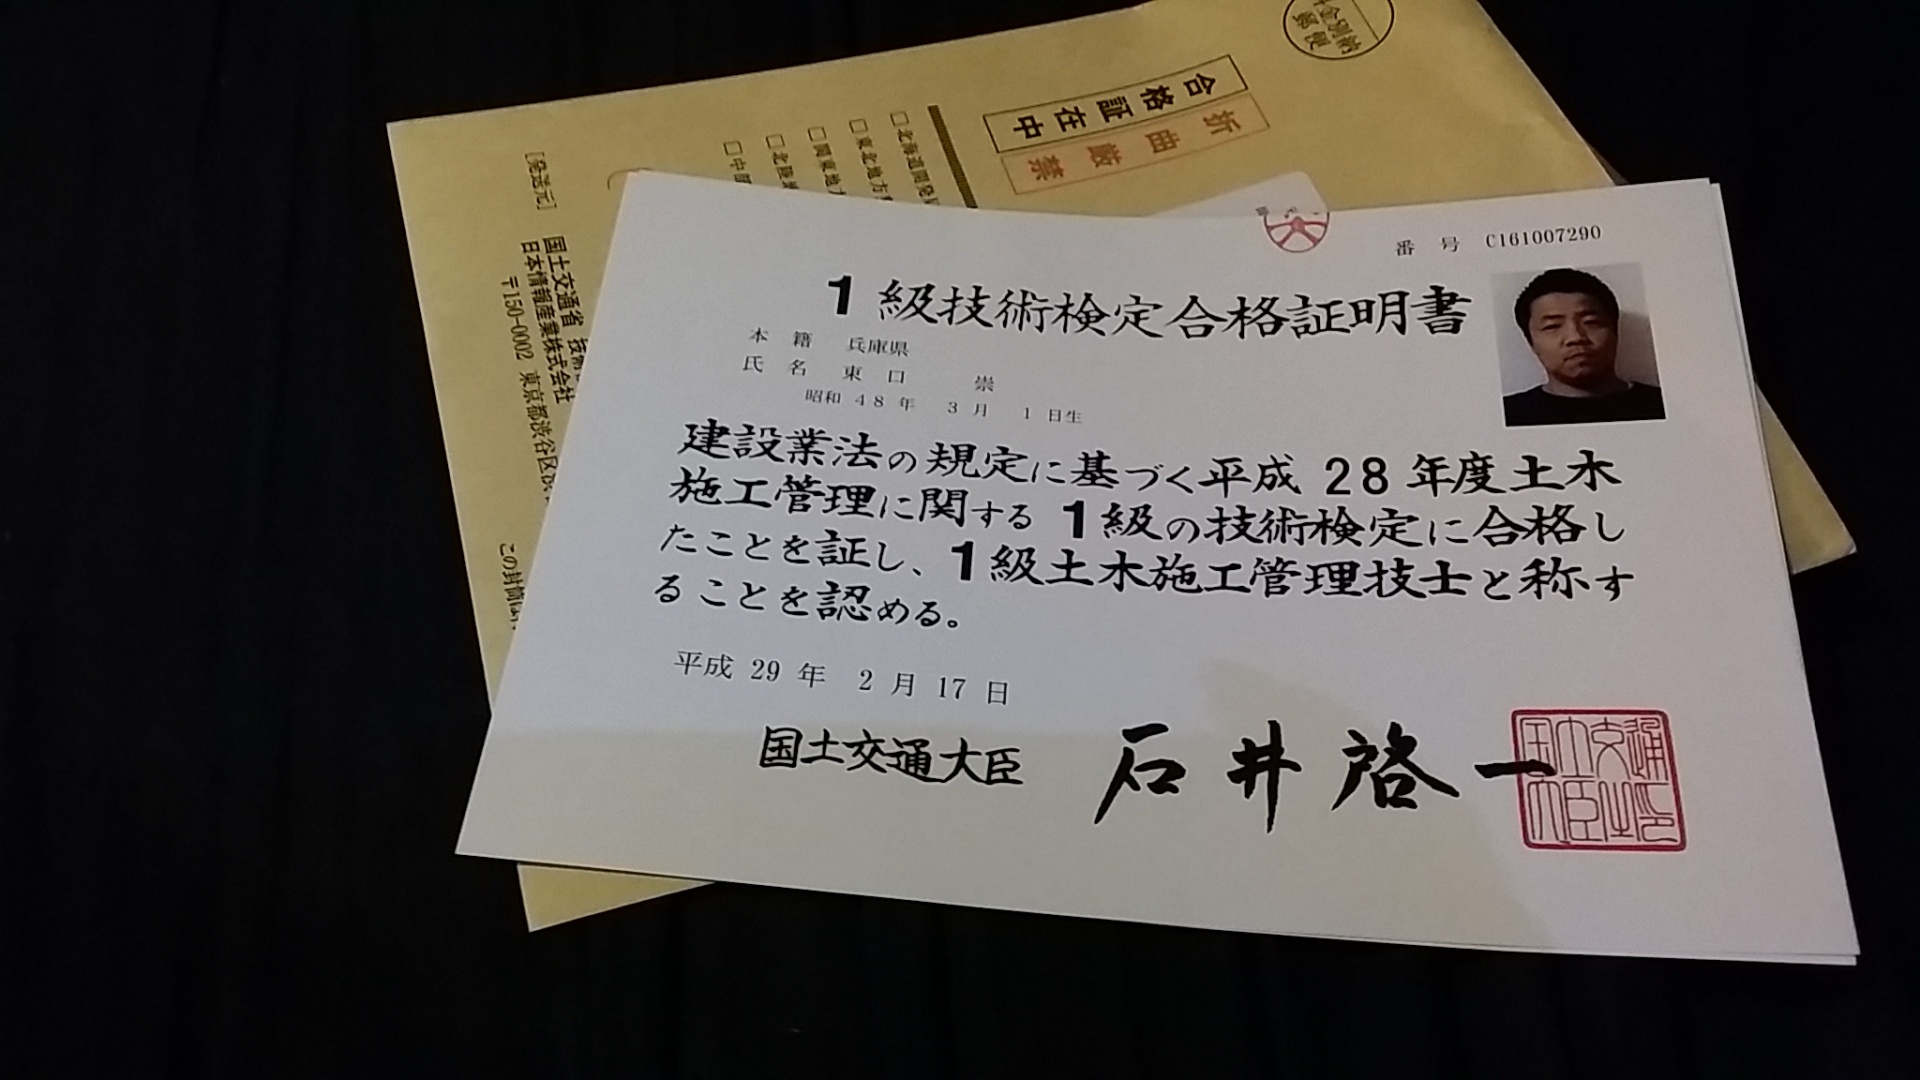 料金別納
郵便
合格証在中
折曲厳禁
□北海道開発局
□東北地方
□関東地方
□北陸地
□中部
［発送元］
国土交通省 技術
日本情報産業株式会社
〒150-0002 東京都渋谷区渋
この封筒は、
番 号 C161007290
1級技術検定合格証明書
本 籍 兵庫県
氏 名 東 口 崇
昭和 48 年 3 月 1 日生
建設業法の規定に基づく平成 28 年度土木
施工管理に関する 1級の技術検定に合格し
たことを証し、1級土木施工管理技士と称す
ることを認める。
平成 29 年 2 月 17 日
国土交通大臣 石井啓一
国土交通大臣之印